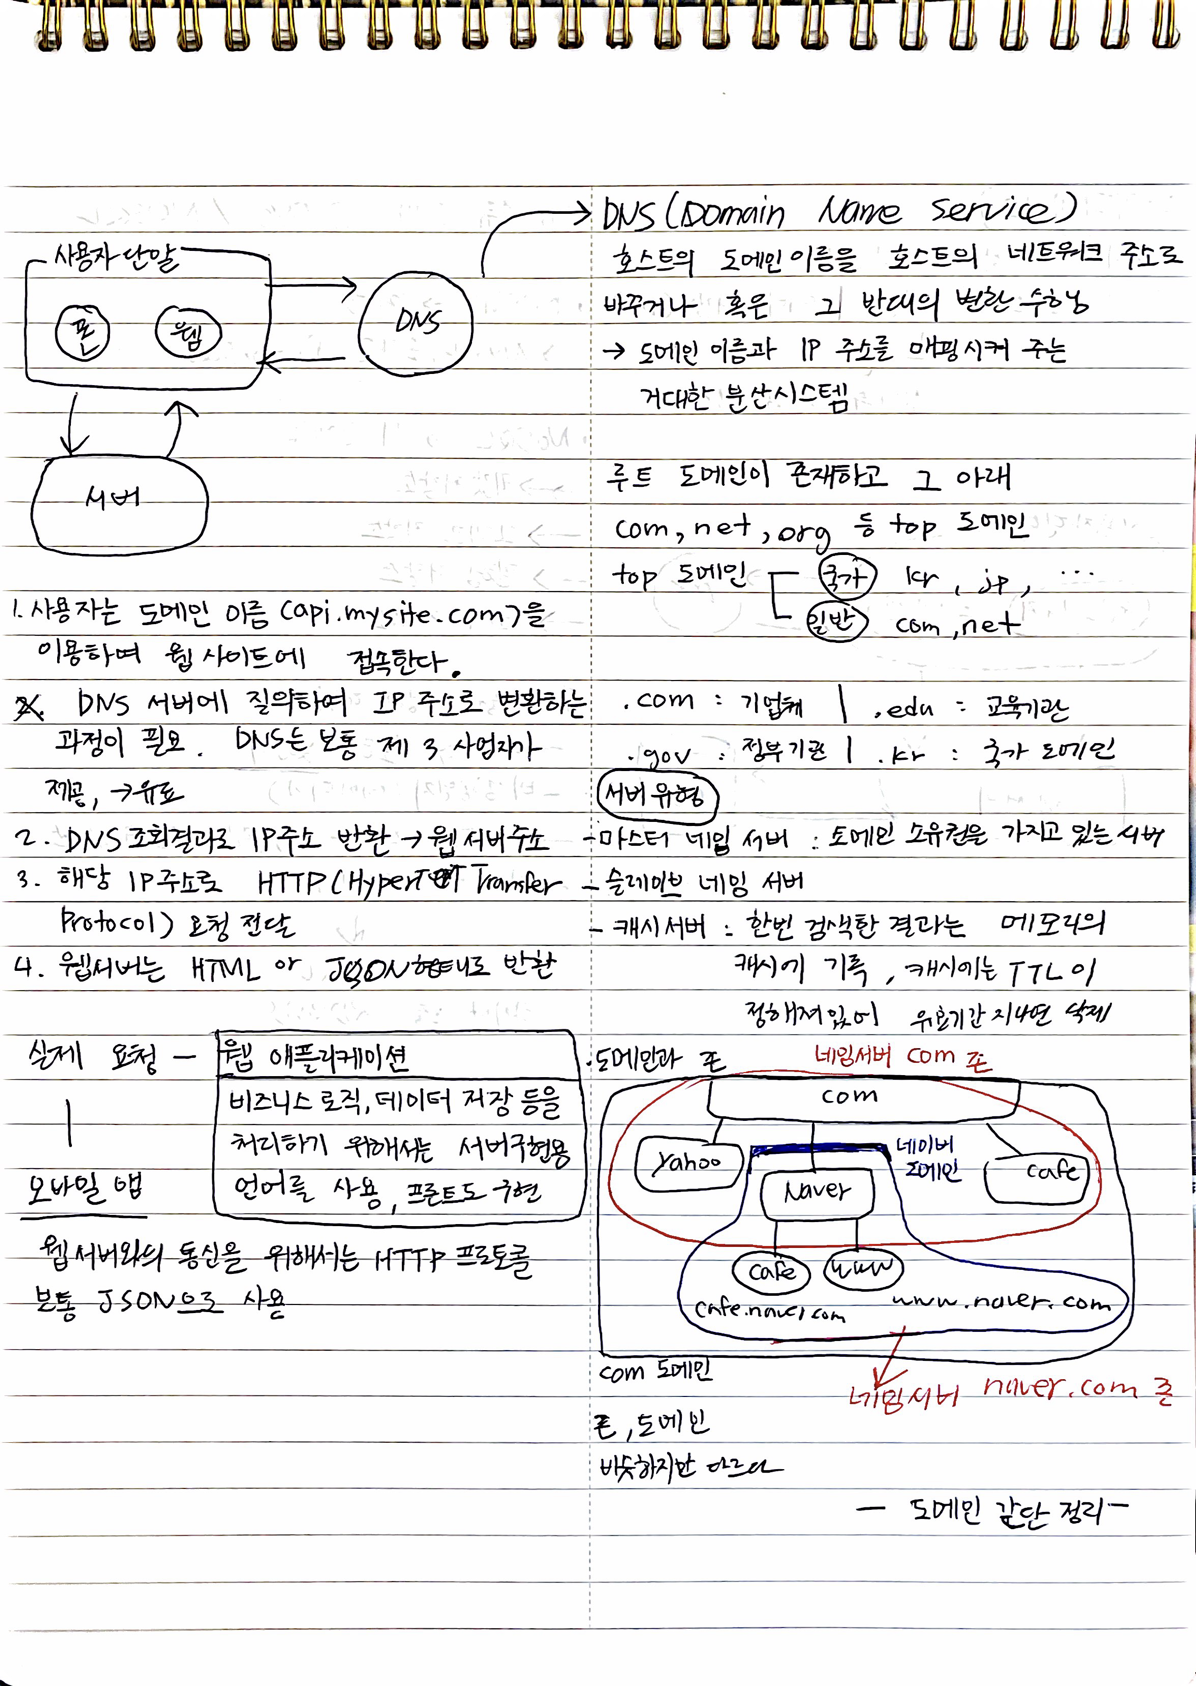 사용자 단말
폰
웹
DNS
서버
1. 사용자는 도메인 이름 (api.mysite.com)을
이용하여 웹 사이트에 접속한다.
※ DNS 서버에 질의하여 IP 주소로 변환하는
과정이 필요. DNS는 보통 제 3 사업자가
제공, →유료
2. DNS 조회결과로 IP주소 반환 → 웹 서버 주소
3. 해당 IP주소로 HTTP(HyperText Transfer
Protocol) 요청 전달
4. 웹서버는 HTML or JSON형태로 반환
실제 요청 —
모바일 앱
웹 애플리케이션
비즈니스 로직, 데이터 저장 등을
처리하기 위해서는 서버구현용
언어를 사용, 프론트도 구현
웹 서버와의 통신을 위해서는 HTTP 프로토콜
보통 JSON으로 사용
DNS (Domain Name Service)
호스트의 도메인 이름을 호스트의 네트워크 주소로
바꾸거나 혹은 그 반대의 변환 수행
→ 도메인 이름과 IP 주소를 매핑시켜 주는
거대한 분산시스템
루트 도메인이 존재하고 그 아래
com, net, org 등 top 도메인
top 도메인 국가 kr, jp, ...
일반 com, net
.com : 기업체 | .edu : 교육기관
.gov : 정부기관 | .kr : 국가 도메인
서버 유형
- 마스터 네임 서버 : 도메인 소유권을 가지고 있는 서버
- 슬레이브 네임 서버
- 캐시서버 : 한번 검색한 결과는 메모리의
캐시에 기록, 캐시에는 TTL이
정해져있어 유효기간 지나면 삭제
·도메인과 존
네임서버 com 존
com
yahoo
네이버
도메인
Naver
cafe
cafe
www
cafe.naver.com
www.naver.com
com 도메인
네임서버 naver.com 존
존, 도메인
비슷하지만 다르다
— 도메인 간단 정리 —